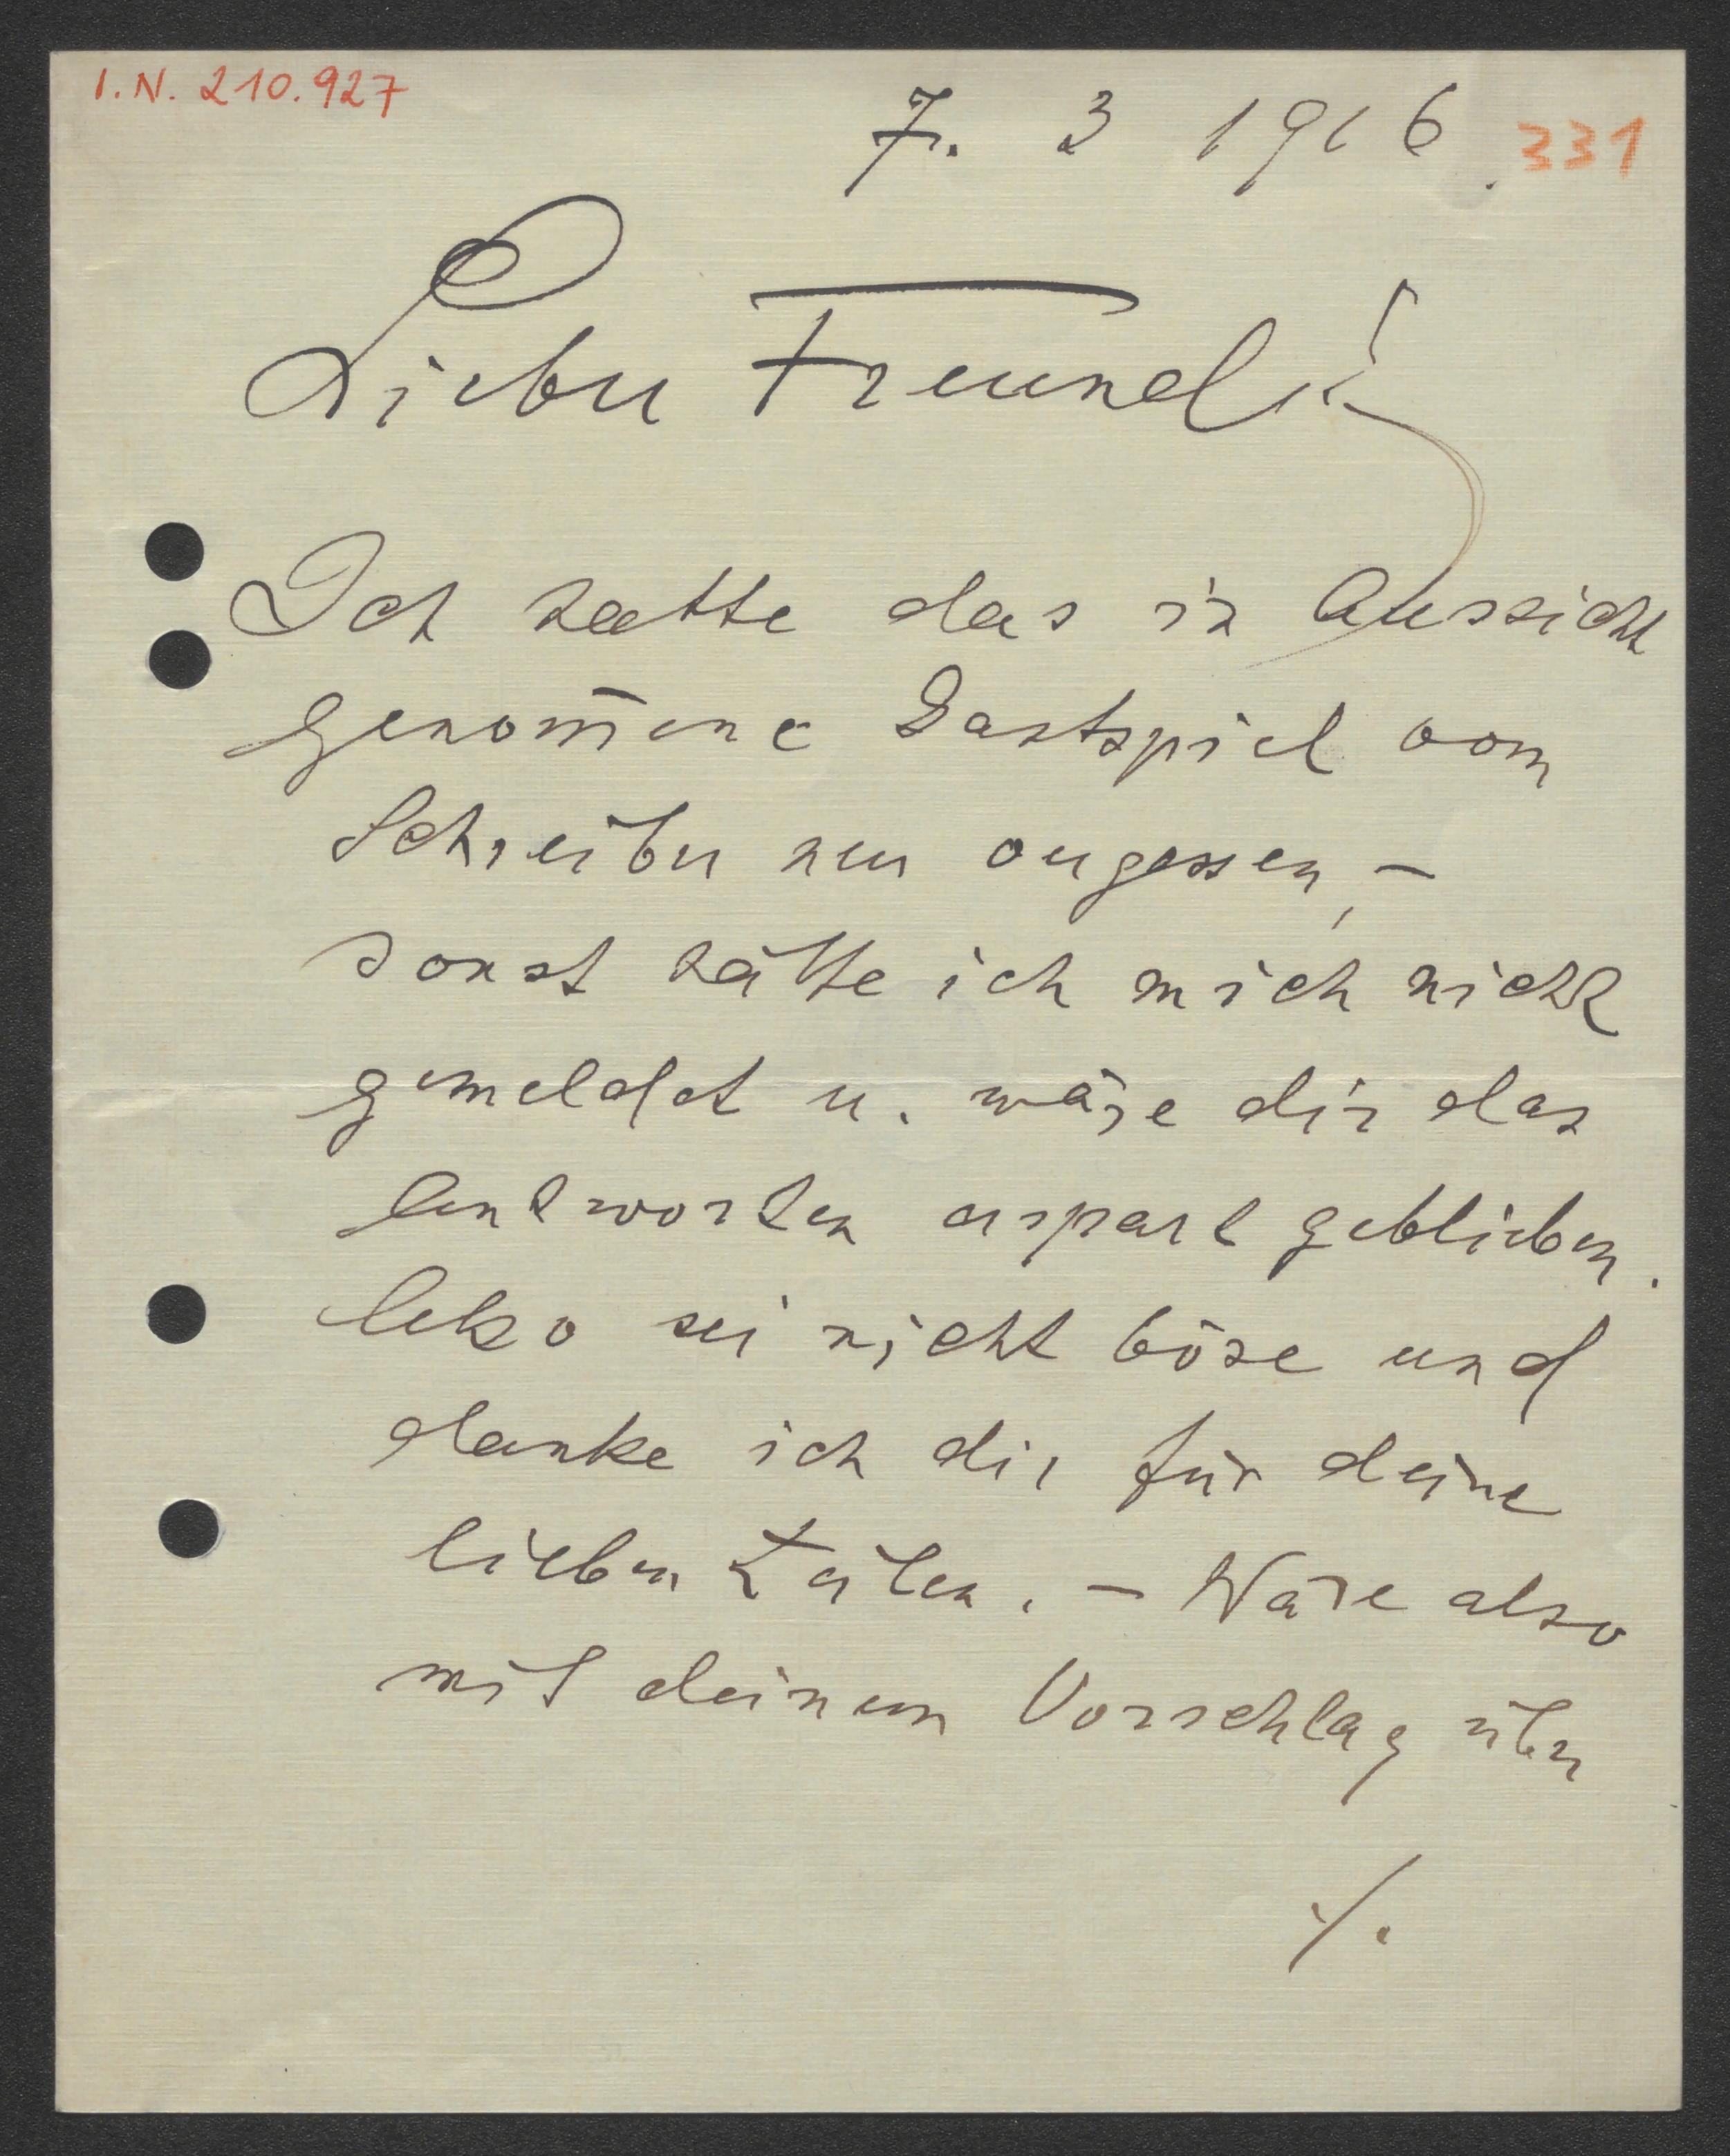 I.N. 210.927
7. 3 1916. 331
Lieber Freund!
Ich hatte das in Aussicht
genom̅ene Gastspiel vom
Schreiber nur vergessen, –
sonst hätte ich mich nicht
gemeldet u. wäre dir das
Antworten erspart geblieben.
Also sei nicht böse und
danke ich dir für deine
lieben Zeilen. – Wäre also
mit deinem Vorschlag über
./.